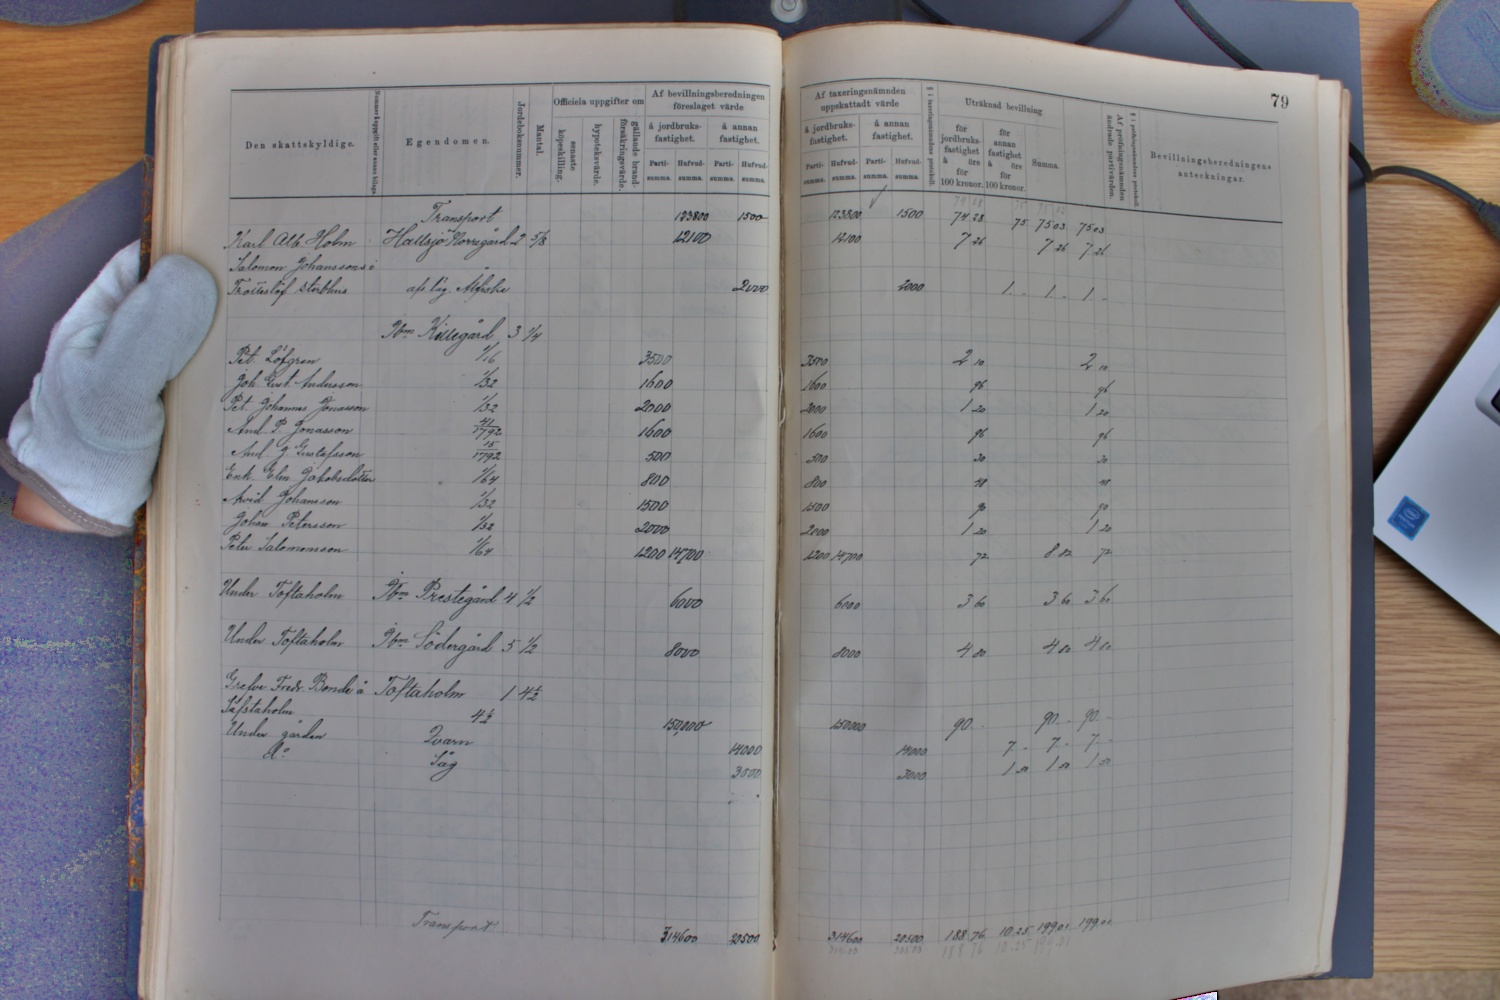 79
Den skattskyldige.
Egendomen.
Jordeboksnummer.
Mantal.
Officiela uppgifter om
senaste köpeskilling.
hypoteksvärde.
gällande brandförsäkringsvärde.
Af bevillningsberedningen föreslaget värde
å jordbruks-fastighet.
å annan fastighet.
Parti-summa. Hufvud-summa. Parti-summa. Hufvud-summa.
Af taxeringsnämnden uppskattadt värde
å jordbruks-fastighet.
å annan fastighet.
Parti-summa. Hufvud-summa. Parti-summa. Hufvud-summa.
Uträknad bevillning
för jordbruks-fastighet à öre för 100 kronor.
för annan fastighet à öre för 100 kronor.
Summa.
Af pröfningsnämnden ändrade partivärden.
Bevillningsberedningens anteckningar.
Transport 123800 1500 123800 1500 74 28 75 75 03 75 03
Karl Alb. Holm Hallsjö Norregård 2 5/8 12100 12100 7 26 7 26 7 26
Salomon Johanssons i
sterbhus af läg. 2000 2000 1 1 1
Dbm Killegård 3 1/4
Pet. Löfgren 1/16 3500 3500 2 10 2 10
Joh. Gust. Andersson 1/32 1600 1600 96 96
Pet. Johannes Jonasson 1/32 2000 2000 1 20 1 20
And. P. Jonasson 41/1792 1600 1600 96 96
And. G. Gustafsson 15/1792 500 500 30 30
Enk. Elin Jakobsdotter 1/64 800 800 48 48
Arvid Johansson 1/32 1500 1500 90 90
Johan Petersson 1/32 2000 2000 1 20 1 20
Peter Salomonsson 1/64 1200 14700 1200 14700 72 8 82 72
Under Toftaholm Dbm Prestegård 4 1/2 6000 6000 3 60 3 60 3 60
Under Toftaholm Dbm Södergård 5 1/2 8000 8000 4 80 4 80 4 80
Grefve Fredr. Bonde å Toftaholm 1 4 1/2
Säfstaholm 4 1/2 150,000 150000 90 90 90
Under gården Qvarn 14000 14000 7 7 7
do Såg 3000 3000 1 50 1 50 1 50
Transport 314600 20500 314600 20500 188 76 10 25 199 01 199 01